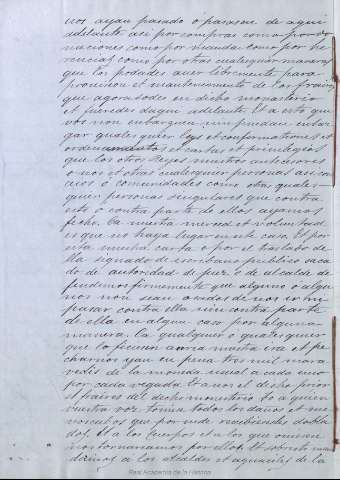 nos ayan pasado o pasasen de aqui
adelante asi por compras como por do
naciones como por mandas como por he
rencias como por otras cualesquier maneras
que los podades aver libremente para
provision et mantenimiento de los fraires
que agora todos en dicho monasterio
et fuerede daqui adelante. Et a esto que
vos non embarguen nin puedan embar
gar quales quier leys et confirmationes et
ordenamientos et cartas et privilegios
que los otros Reyes nuestros antecesores
o nos et otras cualesquier personas asi con
cejos o comunidades como otras quales
quier personas singulares que contra
esto o contra parte de ellos ayamos
fecho. Ca nuestra merced et voluntad
es que no haya lugar en este caso. Et por
esta nuestra carta o por el traslado de
lla signado de escribano publico saca
do de autoridad de juez o de alcalde de
fendemos firmemente que alguno o algu
nos non sean osados de nos ir ni
pasar contra ella nin contra parte
de ella en algun caso por alguna
manera. Ca qualquier o quales quier
que lo ficiesen avria nuestra ira et pe
charnos yan en pena tres mil mara
vedis de la moneda usual a cada uno
por cada vegada. Et a vos el dicho prior
et fraires del dicho monesterio o a quien
vuestra voz toviese todos los daños et me
noscabos que por ende recibiesedes dobla
dos. Et a los cuerpos et a lo que oviesen
nos tornariamos por ello. Et sobresto man
damos a los alcaldes et aguaciles de la
Real Academia de la Historia